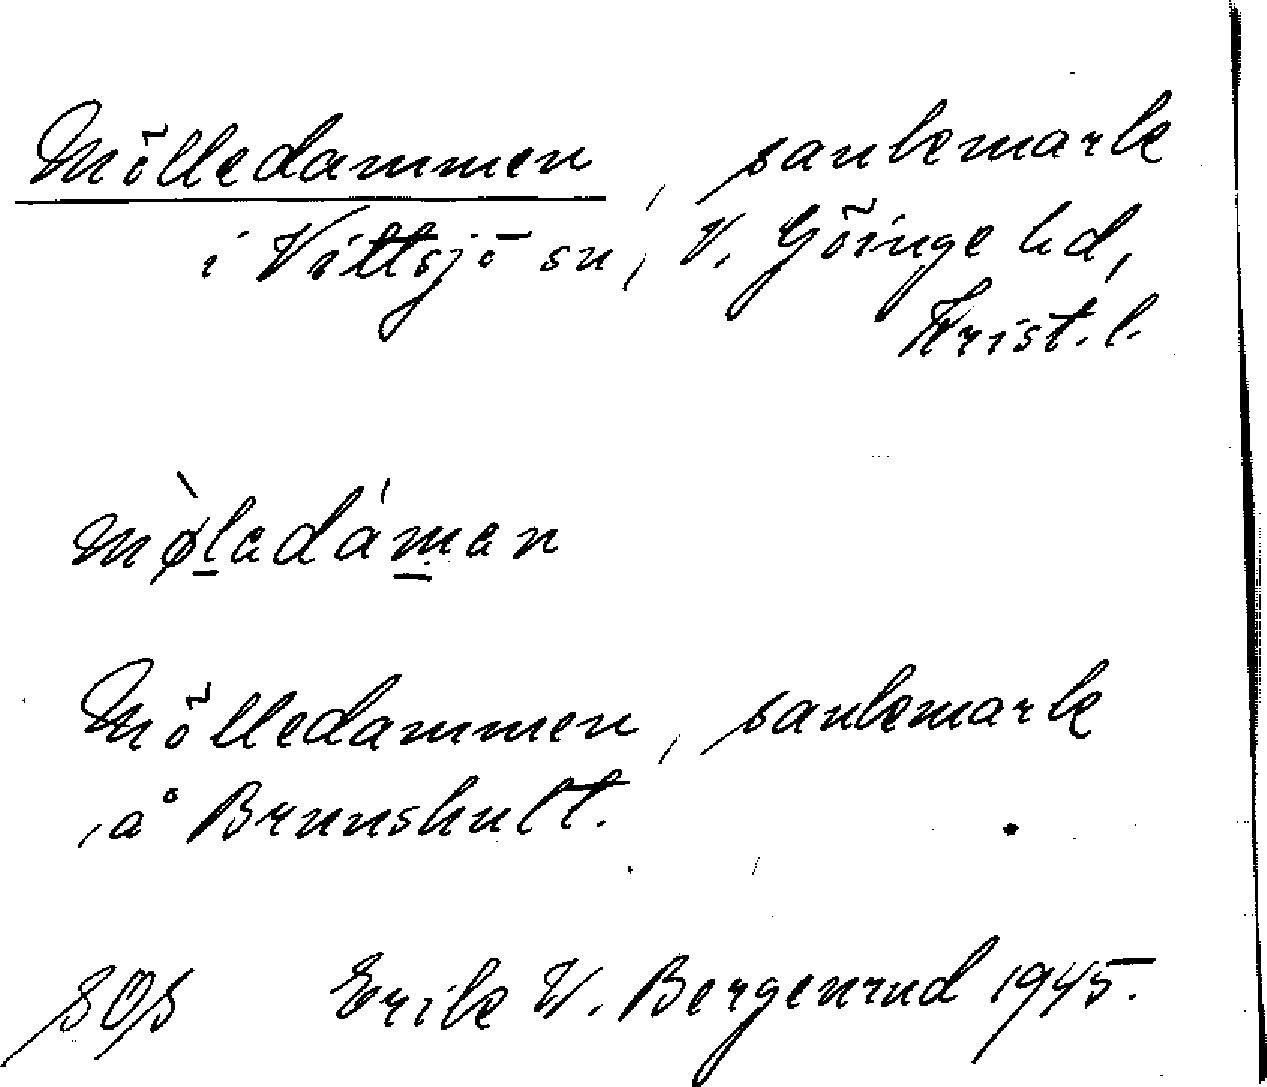 Mölledammen, sankmark
i Vittsjö sn, V. Göinge hd,
Krist. l.
mø̀ladáman
Mölledammen, sankmark
å Brunshult.
SOS Erik W. Bergenrud 1945.